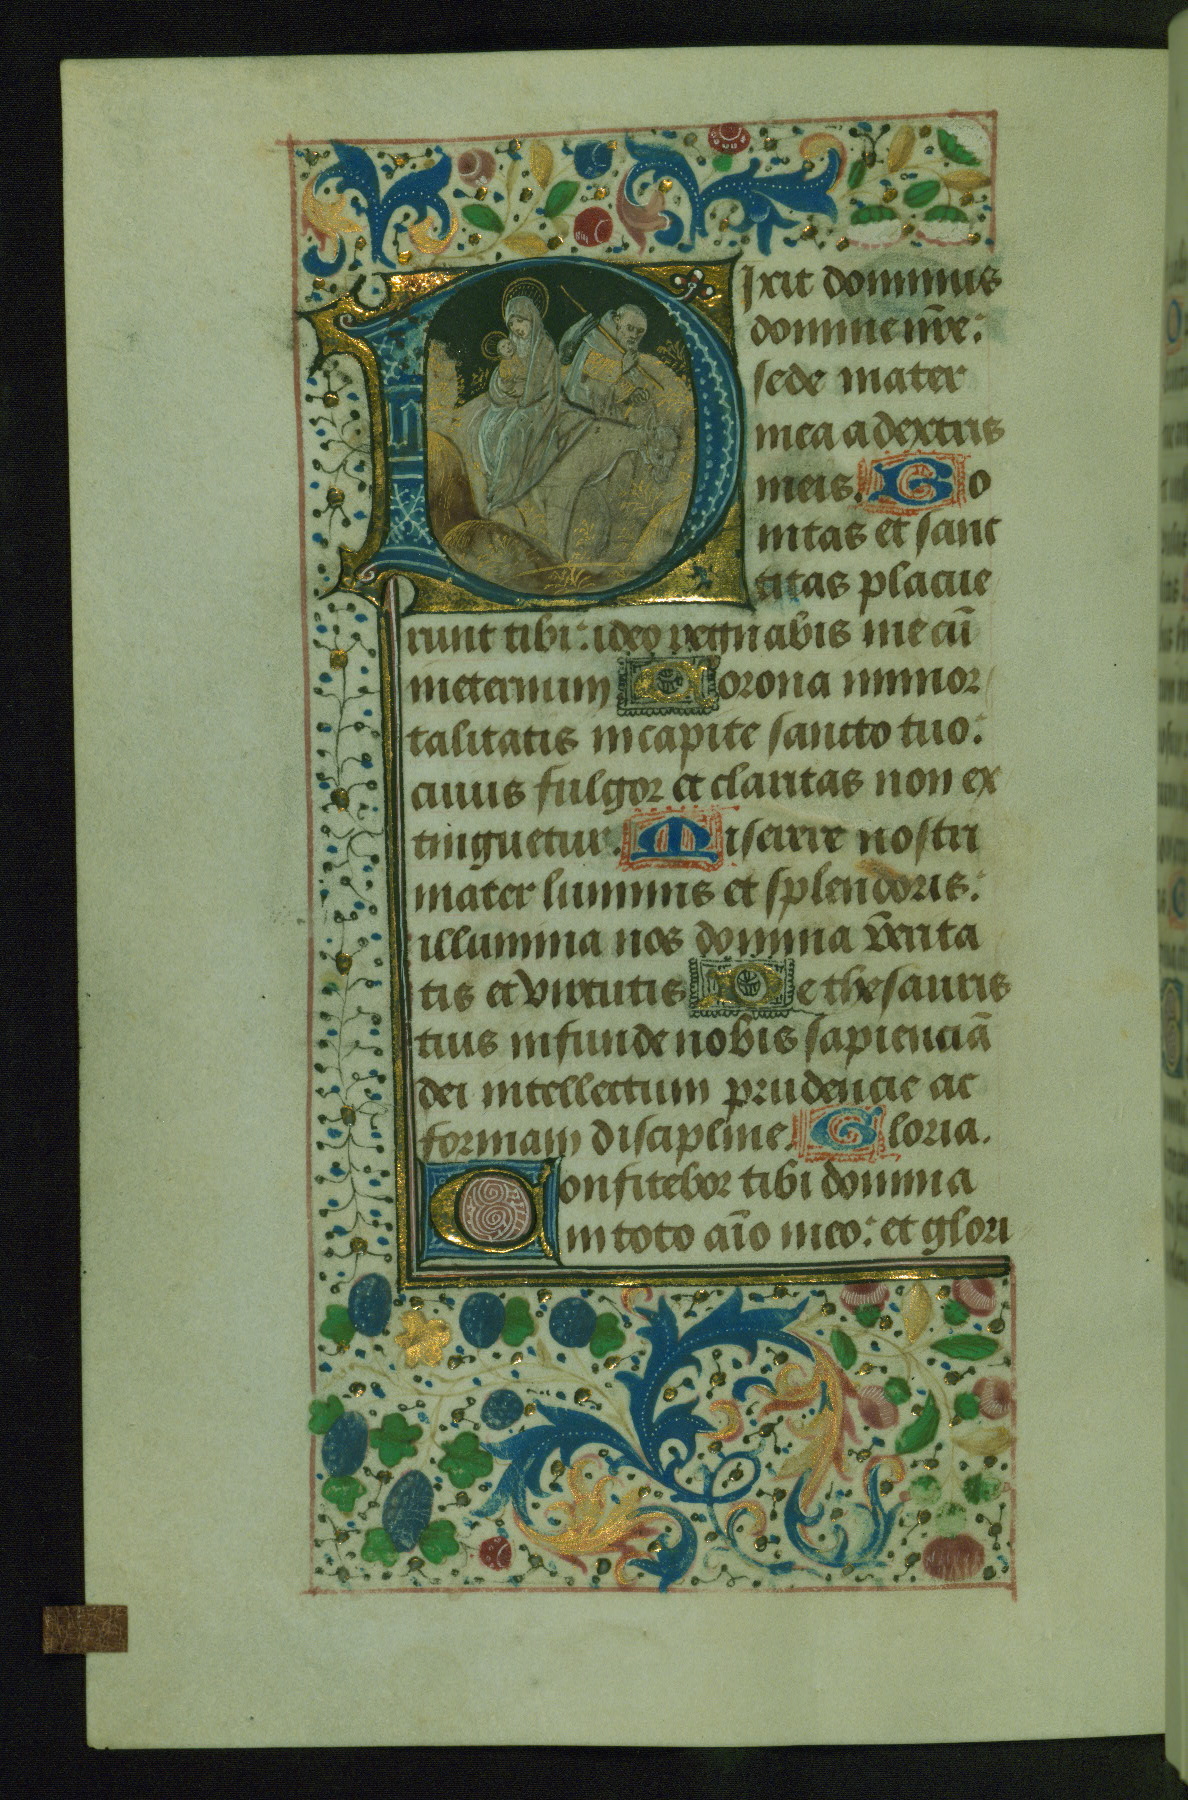 Dixit dominus
domine nr̄e:
sede mater
mea a dextris
meis. Bo
nitas et sanc
titas placue
runt tibi: ideo regnab̄is me cū
meternum Corona immor
talitatis in capite sancto tuo:
cuius fulgor et claritas non ex
tinguetur. Miserere nostri
mater luminis et splendoris:
illumina nos domina v̄erita
tis et virtutis De thesauris
tuis infunde nobis sapienciā
dei intellectum prudencie ac
formam discipline. Gloria.
Confitebor tibi domina
in toto aīo meo: et glori